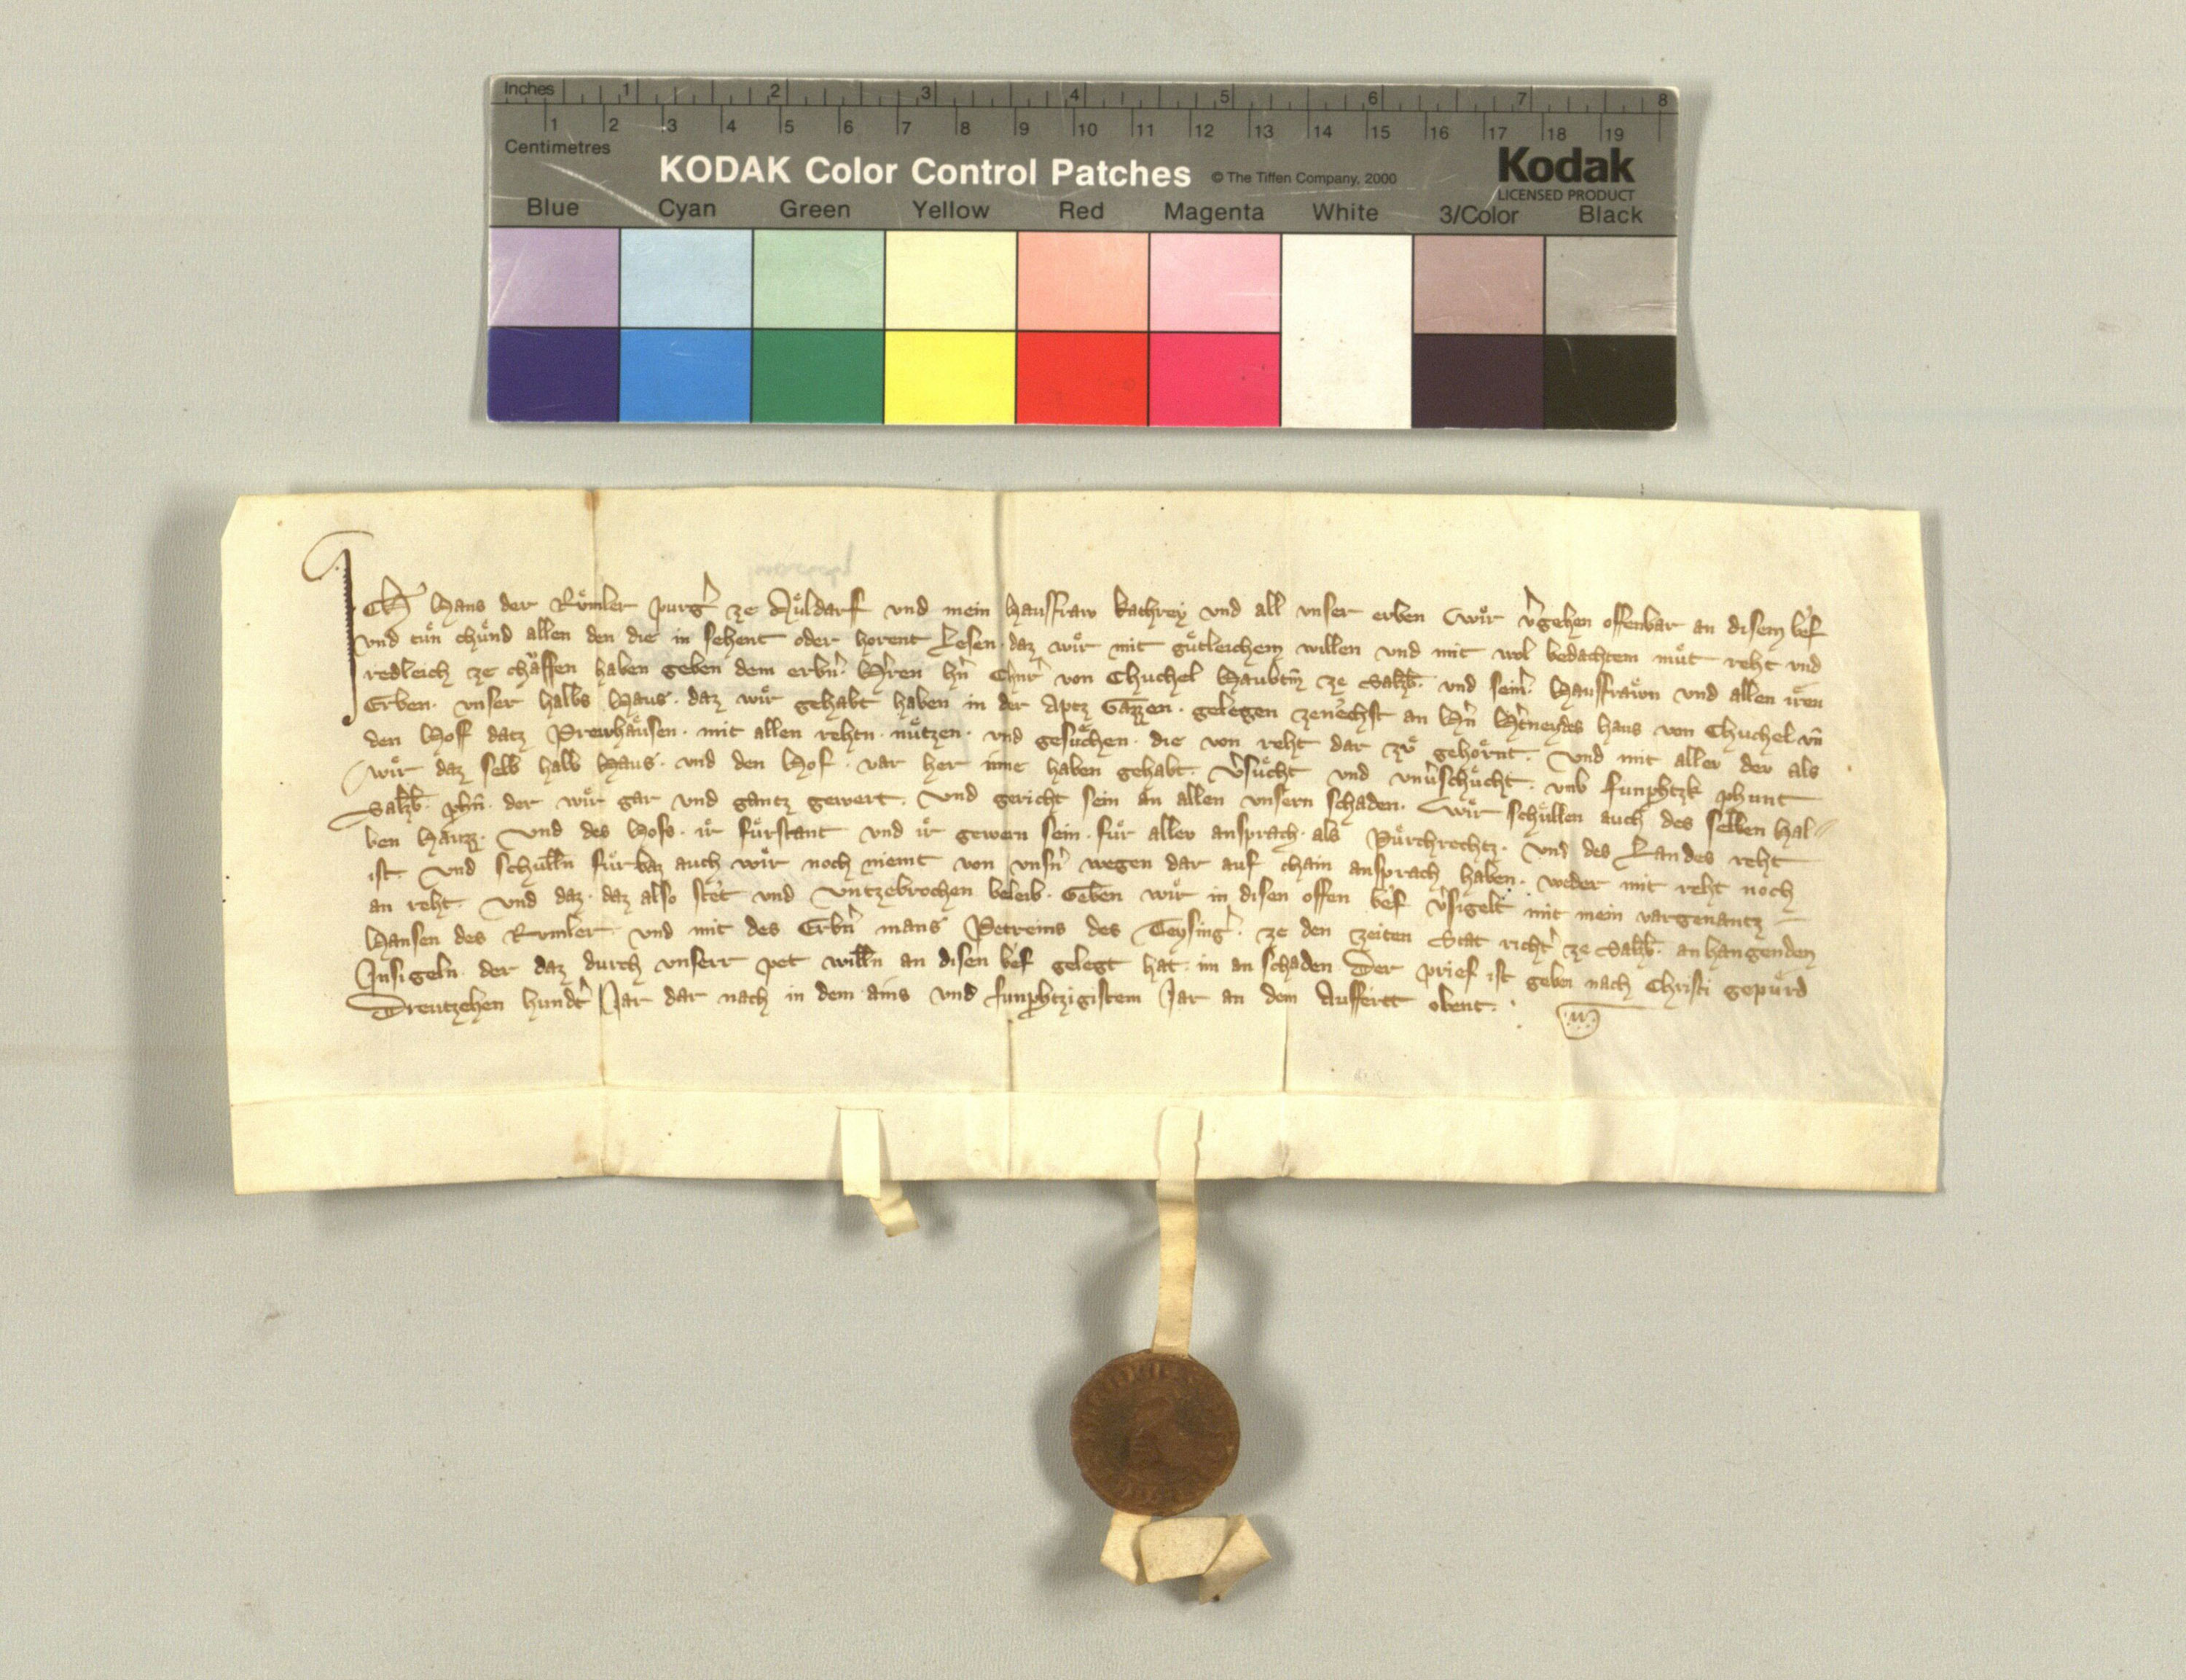 Inches 1 2 3 4 5 6 7 8
1 2 3 4 5 6 7 8 9 10 11 12 13 14 15 16 17 18 19
Centimetres
KODAK Color Control Patches © The Tiffen Company, 2000 Kodak
LICENSED PRODUCT
Blue Cyan Green Yellow Red Magenta White 3/Color Black
ICH Hans der Rumler purgˀ ze Muldarf vnd mein Hausfraw kathrey vnd all vnser erben Wir vˀgehen offenbar an disem bˀef
vnd tun chund allen den die in sehent oder horent Lesen. daz wir mit gutleichem willen vnd mit wol bedachtem mut reht vnd
redleich ze chauffen haben geben dem erbn̄. Hˀren hˀn Chunrˀ von Chuchel Haubtm̄ ze Salzb̄. vnd seinˀ. Hausfrawn vnd allen iren
Erben. vnser halbs Haus. daz wir gehabt haben in der Aptz Gazzen. gelegen zenechst an Hˀn Hˀtneydes haus von Chuchel vn̄
den Hoff datz Prewhausen. mit allen rehtn. nutzen. vnd gesuchen. die von reht dar zu gehornt. Vnd mit aller der als
wir daz selb halb Haus. vnd den Hof. var her inne haben gehabt. vˀsucht vnd vnuˀsucht. vmb funphtzk phunt
Salzb̄. phn̄. der wir gar vnd gantz gewert. Vnd gericht sein an allen vnsern schaden. Wir schullen auch des selben hal=
ben Hauzz. Vnd des Hofs. ir furstant vnd ir gewern sein. fur aller ansprach. als Purchrechtz. Vnd des Landes reht
ist. Vnd schulln̄ furbaz auch wir noch niemt von vnsnˀ wegen dar auf chain ansprach haben. weder mit reht noch
an reht. Vnd daz. daz also stet vnd vntzebrochen beleib. Geben wir in disen offen bˀef vˀsigelt mit mein vargenantz
Hansen des Rumler. vnd mit des Erbn̄ mans Petreins des Teysingˀ. ze den zeiten Stat richtˀ ze Salzb̄. anhangenden
Insigeln. der daz durch vnserr pet willn̄ an disen bˀef gelegt hat. im an schaden. Der prief ist geben nach Christi gepurd
Dreutzehen hundtˀ Jar dar nach in dem ains vnd funphtzigistem Jar an dem Auffertt obent.